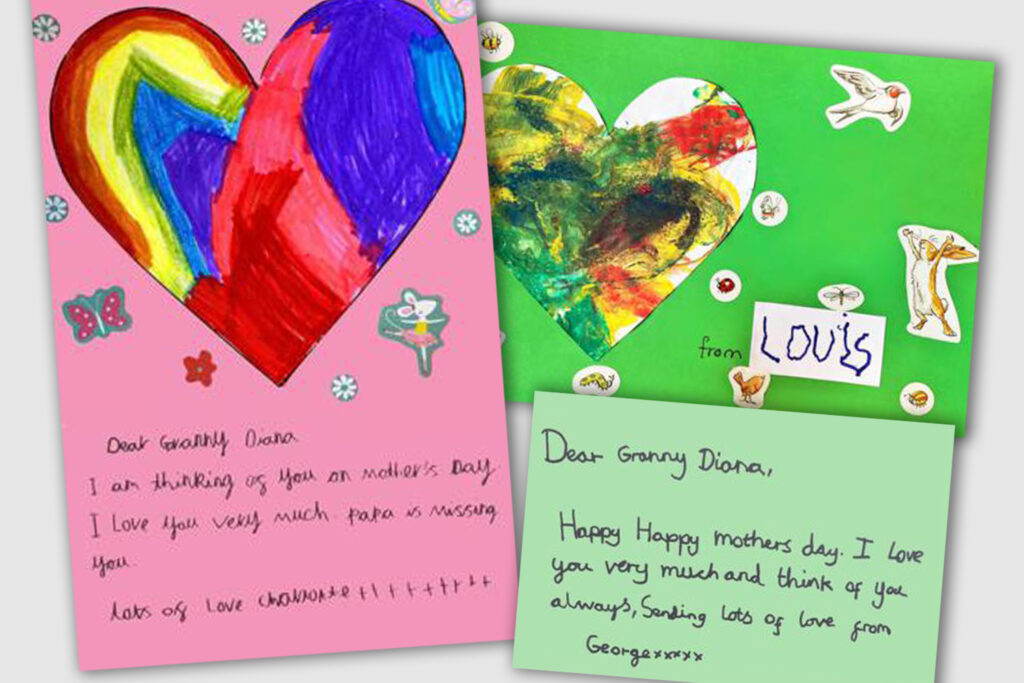 Dear Granny Diana
I am thinking of you on mother's Day
I Love you very much. Papa is missing
you.
lots of love charlotte +++++++
from LOUIS
Dear Granny Diana,
Happy Happy mothers day. I love
you very much and think of you
always, Sending lots of love from
George xxxxx